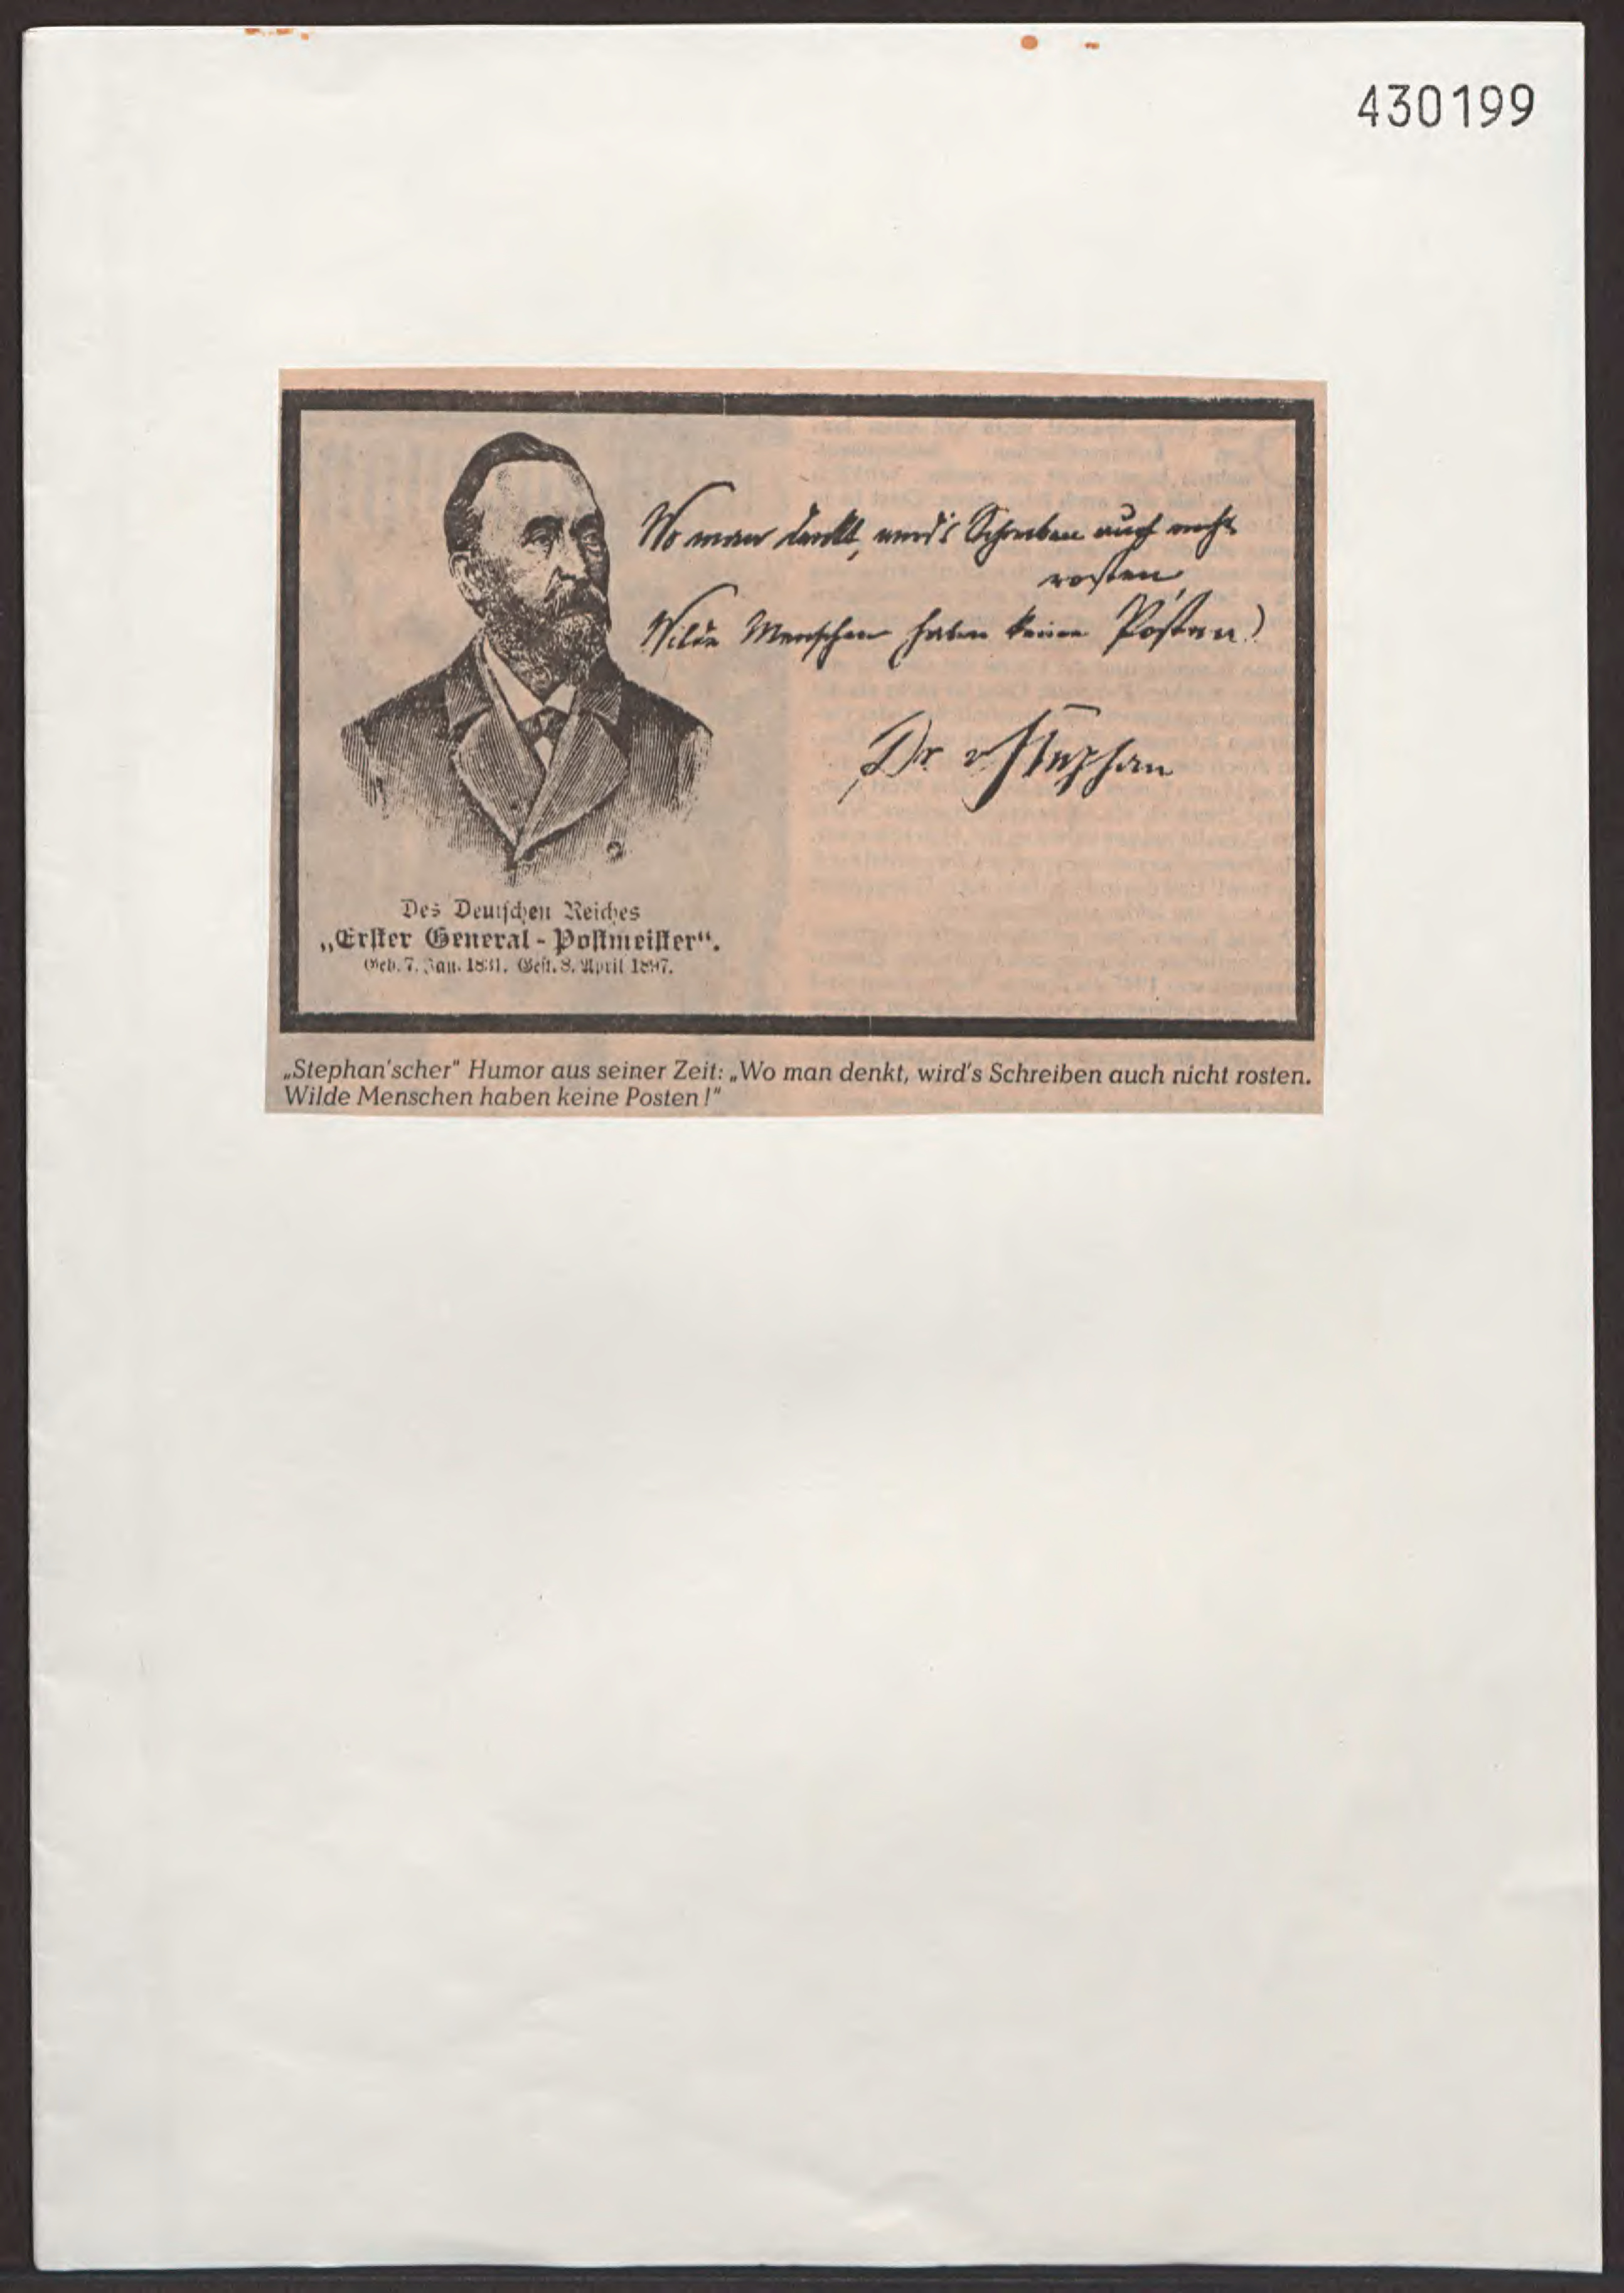 430199
Wo man denkt, wird's Schreiben auch nicht
rosten
Wilde Menschen haben keine Posten!
Dr v Stephan
Des Deutschen Reiches
„Erster General-Postmeister“.
Geb. 7. Jan. 1831. Gest. 8. April 1897.
„Stephan'scher" Humor aus seiner Zeit: „Wo man denkt, wird's Schreiben auch nicht rosten.
Wilde Menschen haben keine Posten!"